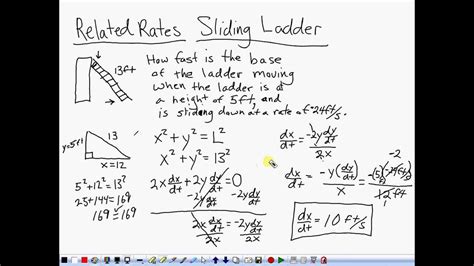 Related Rates Sliding Ladder
13ft
How fast is the base
of the ladder moving
when the ladder is at
a height of 5ft, and
is sliding down at a rate of -24ft/s.
y=5ft
13
x=12
5²+12²=13²
25+144=169
169=169
x²+y²=L²
x²+y²=13²
2x dx/dt + 2y dy/dt = 0
-2y dy/dt -2y dy/dt
2x dx/dt / 2x = -2y dy/dt / 2x
dx/dt = -2y dy/dt / 2x
dx/dt = -y (dy/dt) / x =
-2
dx/dt = 10 ft/s